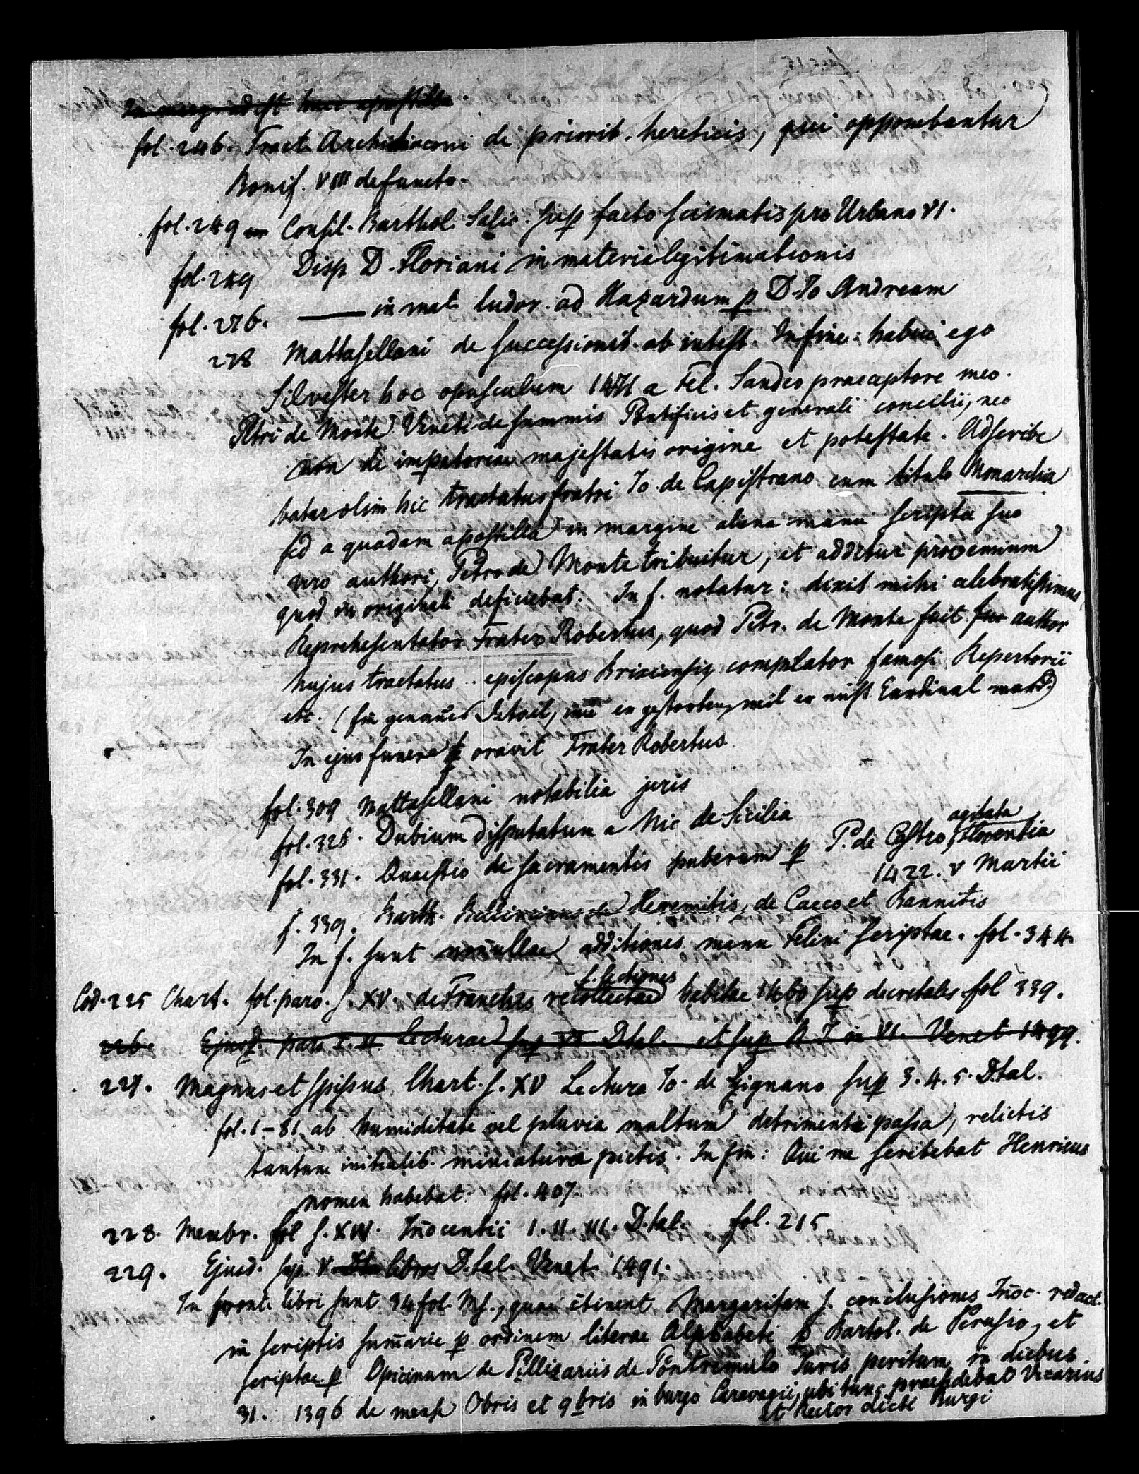 In marg. adest haec apostilla
fol. 246. Tract. Archidiaconi de priorit. hereticis, qui opponebantur
Bonif. VIII defuncto.
fol. 249 Consil. Barthol. Salic. sup facto scismatis pro Urbano VI.
fol. 249 Disp D. Floriani in materia legitimationis
fol. 276. —— in mat. ludor. ad Hazardum p D. Io Andream
278 Mattasellani de successionib. ab intest. In fine: habui ego
Silvester hoc opusculum 1471 a Fel. Sandeo praeceptore meo.
Petri de Monte Veneti de summis Pontificis et generalis concilii, nec
non de imperatoriae majestatis origine et potestate. Adscribe
batur olim hic tractatus fratri Io de Capistrano cum titulo Monarchia
sed a quadam apostilla in margine aliena manu scripta suo
vero authori, Petro de Monte tribuitur, et additur prooemium
quod in originali deficiebat. In f. notatur: dixit mihi celebratissimus
Frater Robertus, quod Petr. de Monte fuit author
hujus tractatus episcopus brixiensis compilator famosi Repertorii
etc.
In ejus funere oravit Frater Robertus.
fol. 309 Mattasellani notabilia juris
fol. 325. Dubium disputatum a Nic de Sicilia
fol. 331. Quaestio de sacramentis puberum p P. de Castro, agitata Florentia
1422. V Martii
f. 339. Barth. Bellincinus de Heremitis, de Caeco et Bannitis
In f. sunt nonnullae additiones manu Felini scriptae. fol. 344.
Cod. 225 Chart. fol. parv. s. XV. de Franchis recollectae lectiones habitae 1460 sup decretales fol 339.
226. Ejusd. pars I. II. Lecturae sup VI Dtal. et sup R J in VI. Venet 1499.
227. Magnus et spissus Chart. s. XV Lectura Io. de Lignano sup 3. 4. 5. Dtal.
fol. 1-81 ab humiditate vel pluvia multum detrimenta passa, relictis
tantum initialib. miniatura pictis. In fin: Qui me scribebat Henricus
nomen habebat. fol. 407.
228. Membr. fol s. XIV. Inocentii I. II. III. Dtal. fol. 215
229. Ejusd. sup. V. libros Dtal. Venet. 1491.
In fronte libri sunt 34 fol. Ms., quae ctinent Margaritam s. conclusiones Inoc. redact.
in scriptis summarie p ordinem literae Alphabeti p Bartol. de Perusio, et
scriptae p Opicinum de Pellizariis de Pontremulo Juris peritum, in diebus
31. 1396 de mense Obris et 9bris in burgo Caravagii, ubi tunc praesidebat Vicarius
et Rector dicti Burgi